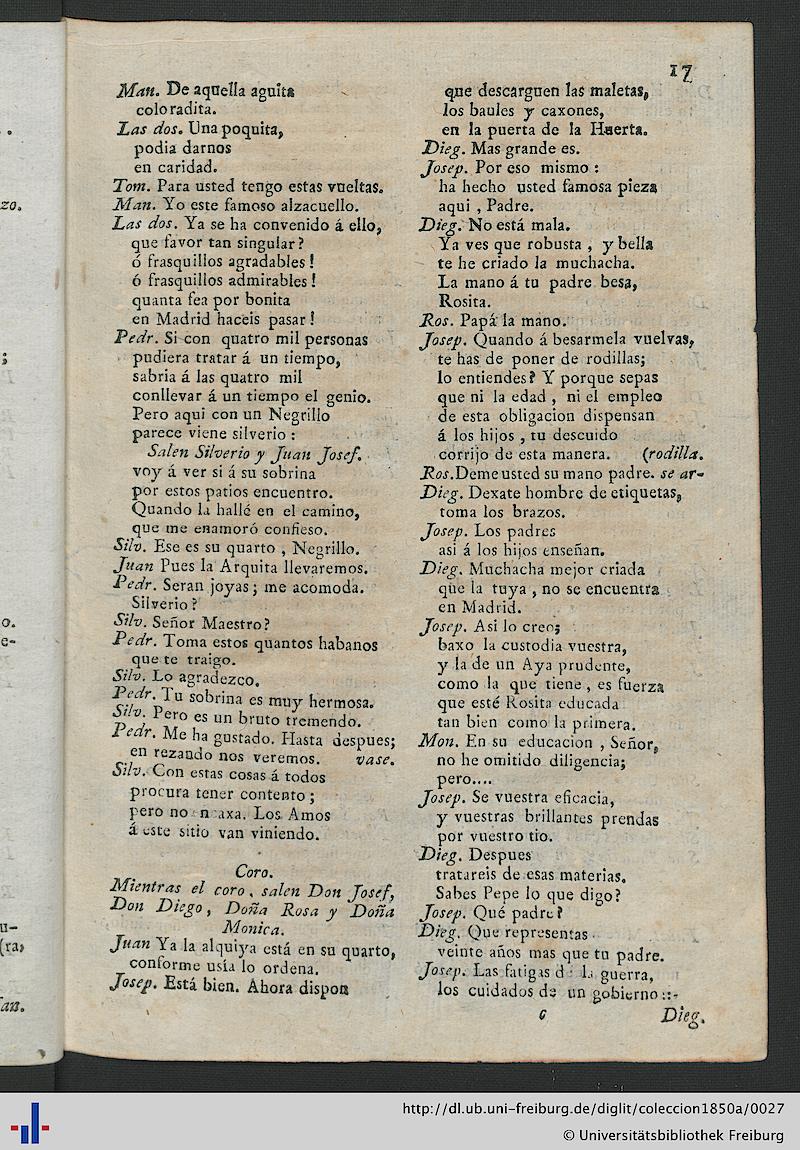 17
Man. De aquella aguita
coloradita.
Las dos. Una poquita,
podia darnos
en caridad.
Tom. Para usted tengo estas vueltas.
Man. Yo este famoso alzacuello.
Las dos. Ya se ha convenido á ello,
que favor tan singular?
ó frasquillos agradables!
ó frasquillos admirables!
quanta fea por bonita
en Madrid haceis pasar!
Pedr. Si con quatro mil personas
pudiera tratar á un tiempo,
sabria á las quatro mil
conllevar á un tiempo el genio.
Pero aqui con un Negrillo
parece viene silverio:
Salen Silverio y Juan Josef.
voy á ver si á su sobrina
por estos patios encuentro.
Quando la hallé en el camino,
que me enamoró confieso.
Silv. Ese es su quarto, Negrillo.
Juan Pues la Arquita llevaremos.
Pedr. Seran joyas; me acomoda.
Silverio?
Silv. Señor Maestro?
Pedr. Toma estos quantos habanos
que te traigo.
Silv. Lo agradezco.
Pedr. Tu sobrina es muy hermosa.
Silv. Pero es un bruto tremendo.
Pedr. Me ha gustado. Hasta despues;
en rezando nos veremos. vase.
Silv. Con estas cosas á todos
procura tener contento;
pero no axa. Los Amos
á este sitio van viniendo.
Coro.
Mientras el coro, salen Don Josef,
Don Diego, Doña Rosa y Doña
Monica.
Juan Ya la alquiya está en su quarto,
conforme usía lo ordena.
Josep. Está bien. Ahora dispon
que descarguen las maletas,
los baules y caxones,
en la puerta de la Huerta.
Dieg. Mas grande es.
Josep. Por eso mismo:
ha hecho usted famosa pieza
aqui, Padre.
Dieg. No está mala.
Ya ves que robusta, y bella
te he criado la muchacha.
La mano á tu padre besa,
Rosita.
Ros. Papá la mano.
Josep. Quando á besarmela vuelvas,
te has de poner de rodillas;
lo entiendes? Y porque sepas
que ni la edad, ni el empleo
de esta obligacion dispensan
á los hijos, tu descuido
corrijo de esta manera. (rodilla.
Ros. Deme usted su mano padre. se ar-
Dieg. Dexate hombre de etiquetas,
toma los brazos.
Josep. Los padres
asi á los hijos enseñan.
Dieg. Muchacha mejor criada
que la tuya, no se encuentra
en Madrid.
Josep. Asi lo creo;
baxo la custodia vuestra,
y la de un Aya prudente,
como la que tiene, es fuerza
que esté Rosita educada
tan bien como la primera.
Mon. En su educacion, Señor,
no he omitido diligencia;
pero....
Josep. Se vuestra eficacia,
y vuestras brillantes prendas
por vuestro tio.
Dieg. Despues
tratareis de esas materias.
Sabes Pepe lo que digo?
Josep. Qué padre?
Dieg. Que representas
veinte años mas que tu padre.
Josep. Las fatigas de la guerra,
los cuidados de un gobierno::-
C
Dieg.
zo.
;
o.
e-
u-
(ra,
an.
http://dl.ub.uni-freiburg.de/diglit/coleccion1850a/0027
© Universitätsbibliothek Freiburg